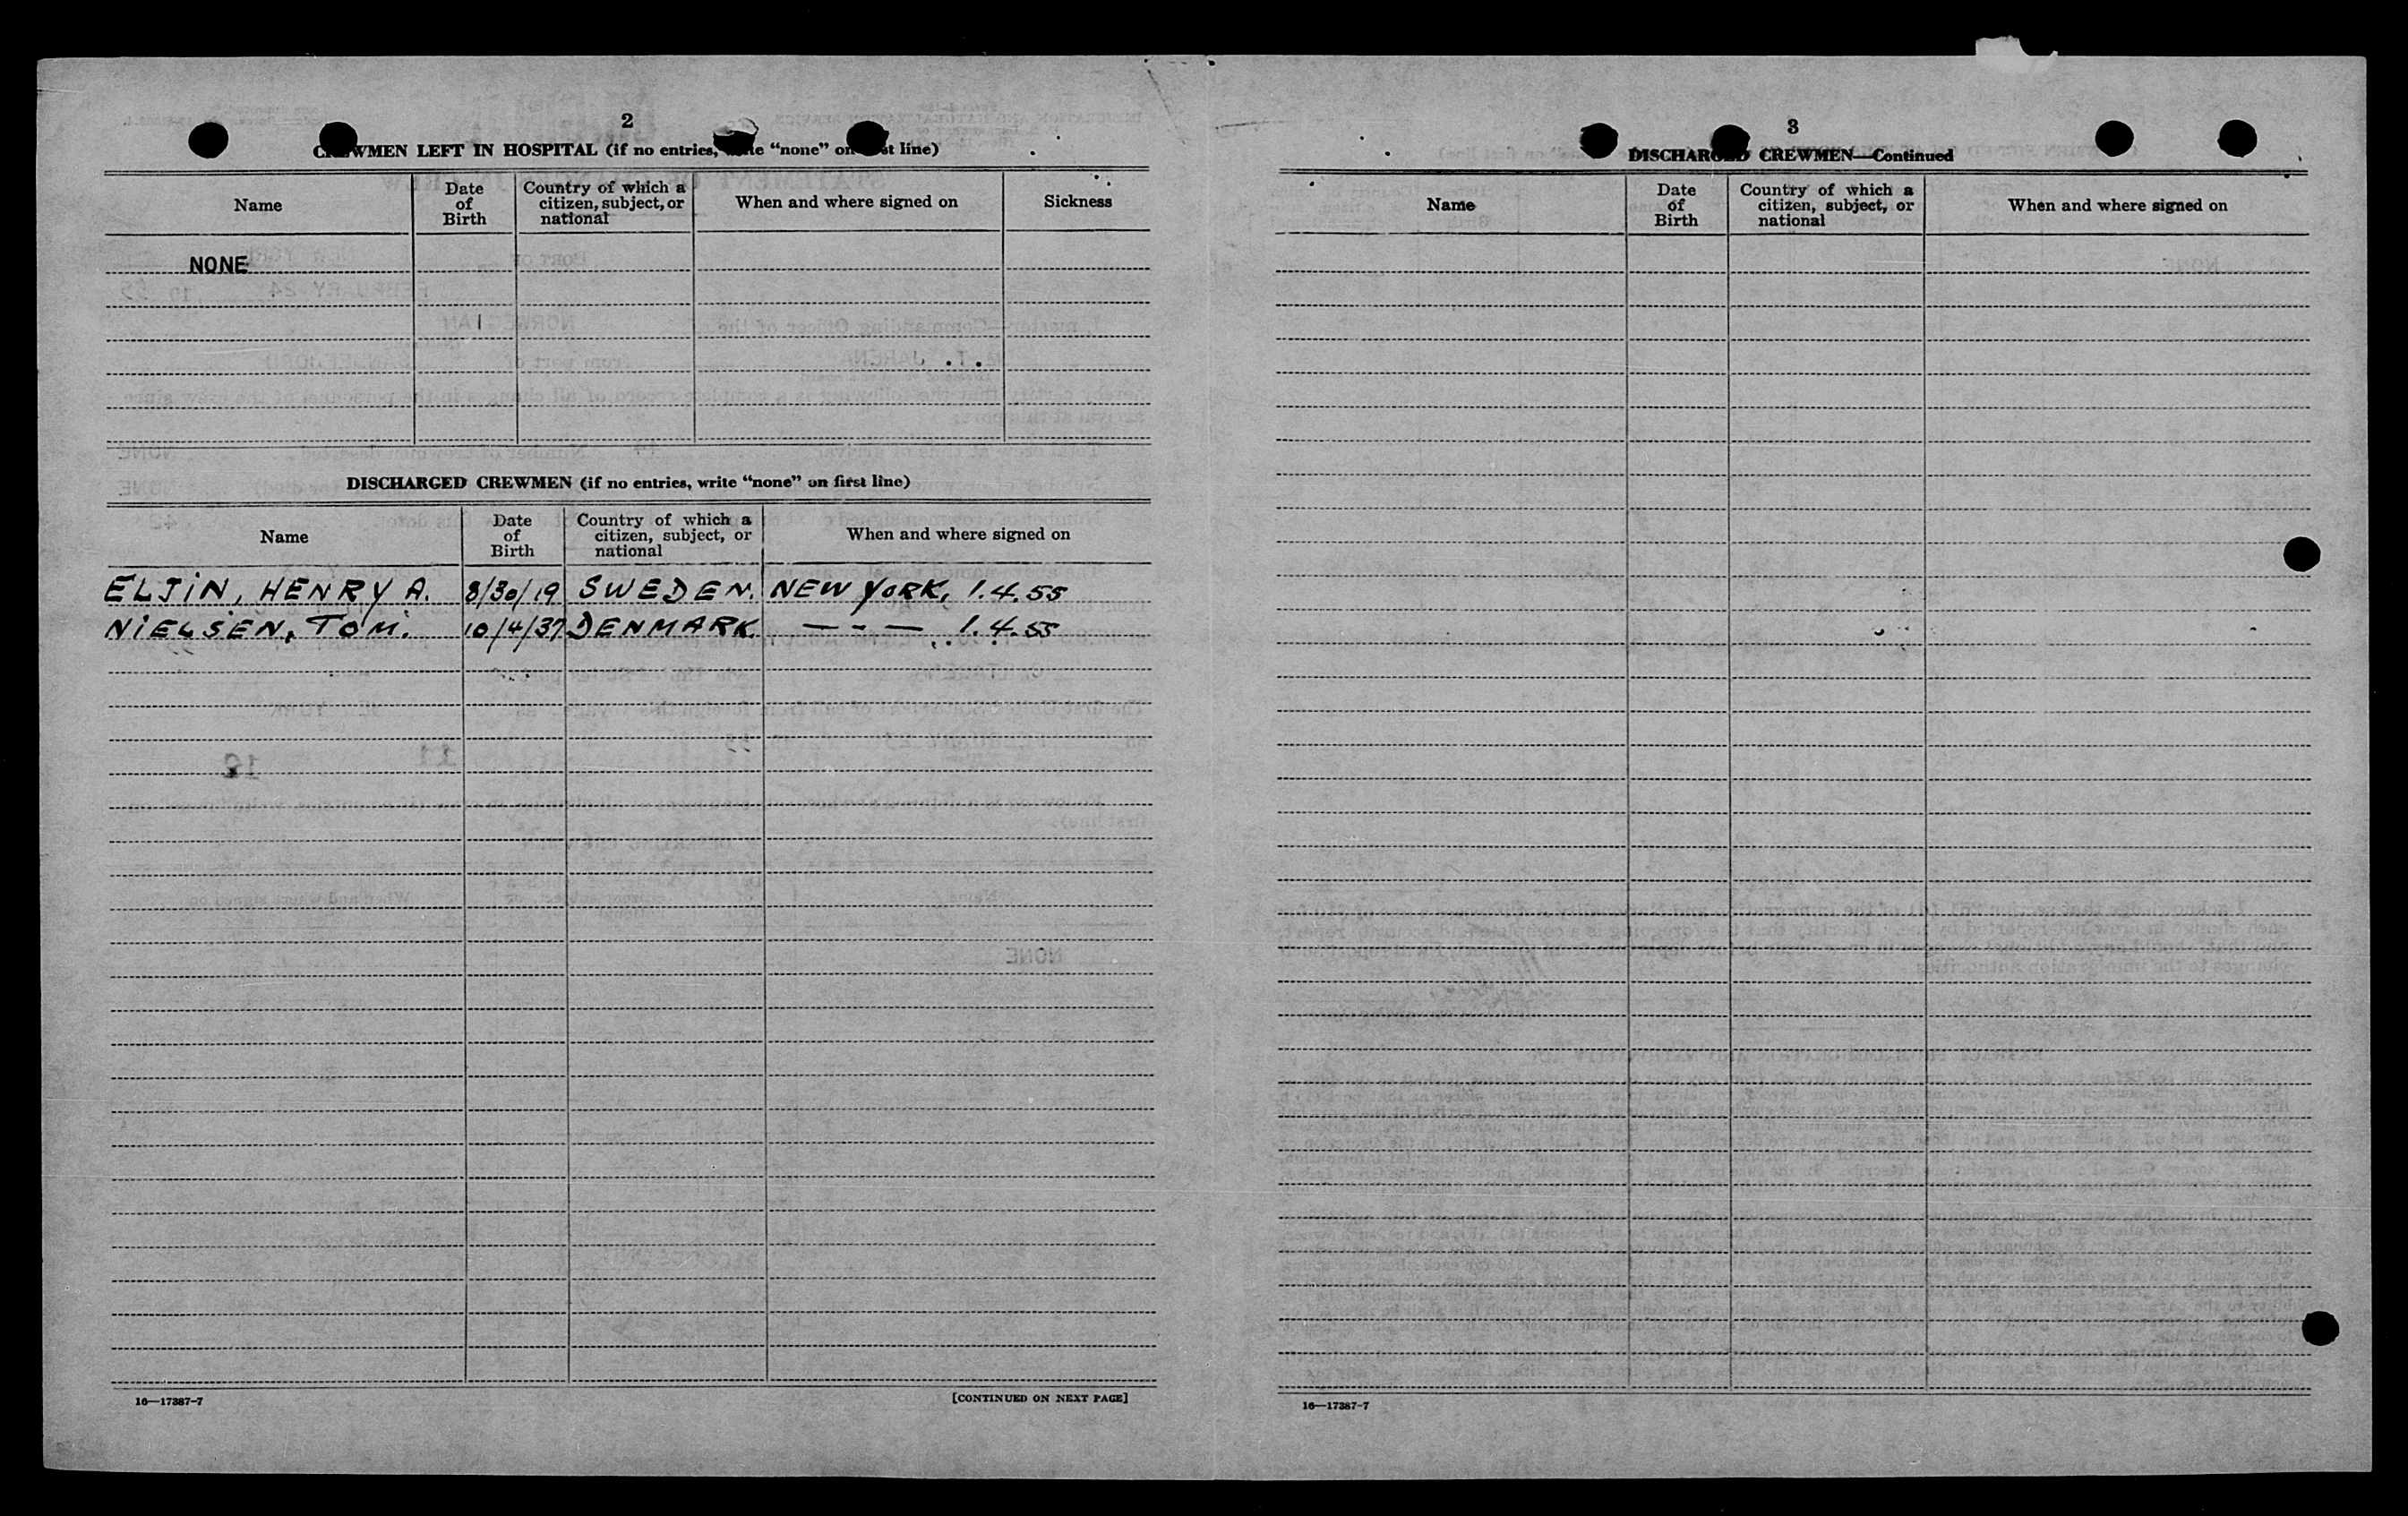 2
CREWMEN LEFT IN HOSPITAL (if no entries, write “none” on first line)
Name
Date of Birth
Country of which a citizen, subject, or national
When and where signed on
Sickness
NONE
DISCHARGED CREWMEN (if no entries, write “none” on first line)
Name
Date of Birth
Country of which a citizen, subject, or national
When and where signed on
ELJIN, HENRY A. 8/30/19 SWEDEN. NEW YORK, 1.4.55
NIELSEN, TOM. 10/4/37 DENMARK — - — 1.4.55
16—17387-7
[CONTINUED ON NEXT PAGE]
3
DISCHARGED CREWMEN—Continued
Name
Date of Birth
Country of which a citizen, subject, or national
When and where signed on
16—17387-7